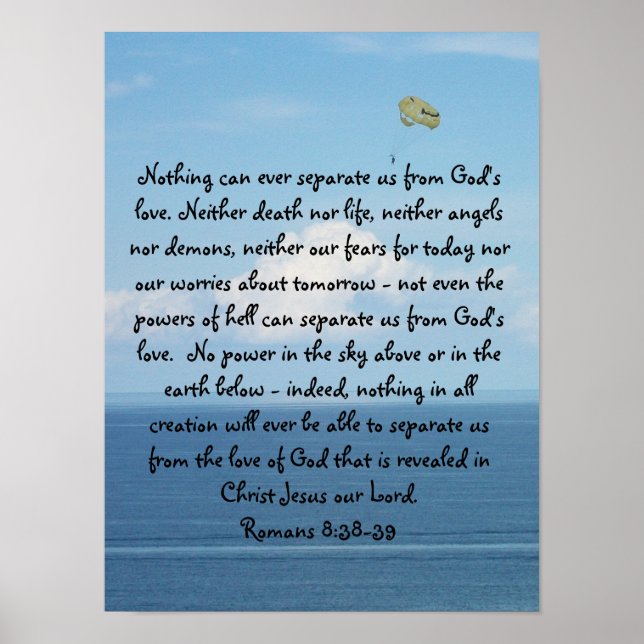 Nothing can ever separate us from God's
love. Neither death nor life, neither angels
nor demons, neither our fears for today nor
our worries about tomorrow - not even the
powers of hell can separate us from God's
love. No power in the sky above or in the
earth below - indeed, nothing in all
creation will ever be able to separate us
from the love of God that is revealed in
Christ Jesus our Lord.
Romans 8:38-39